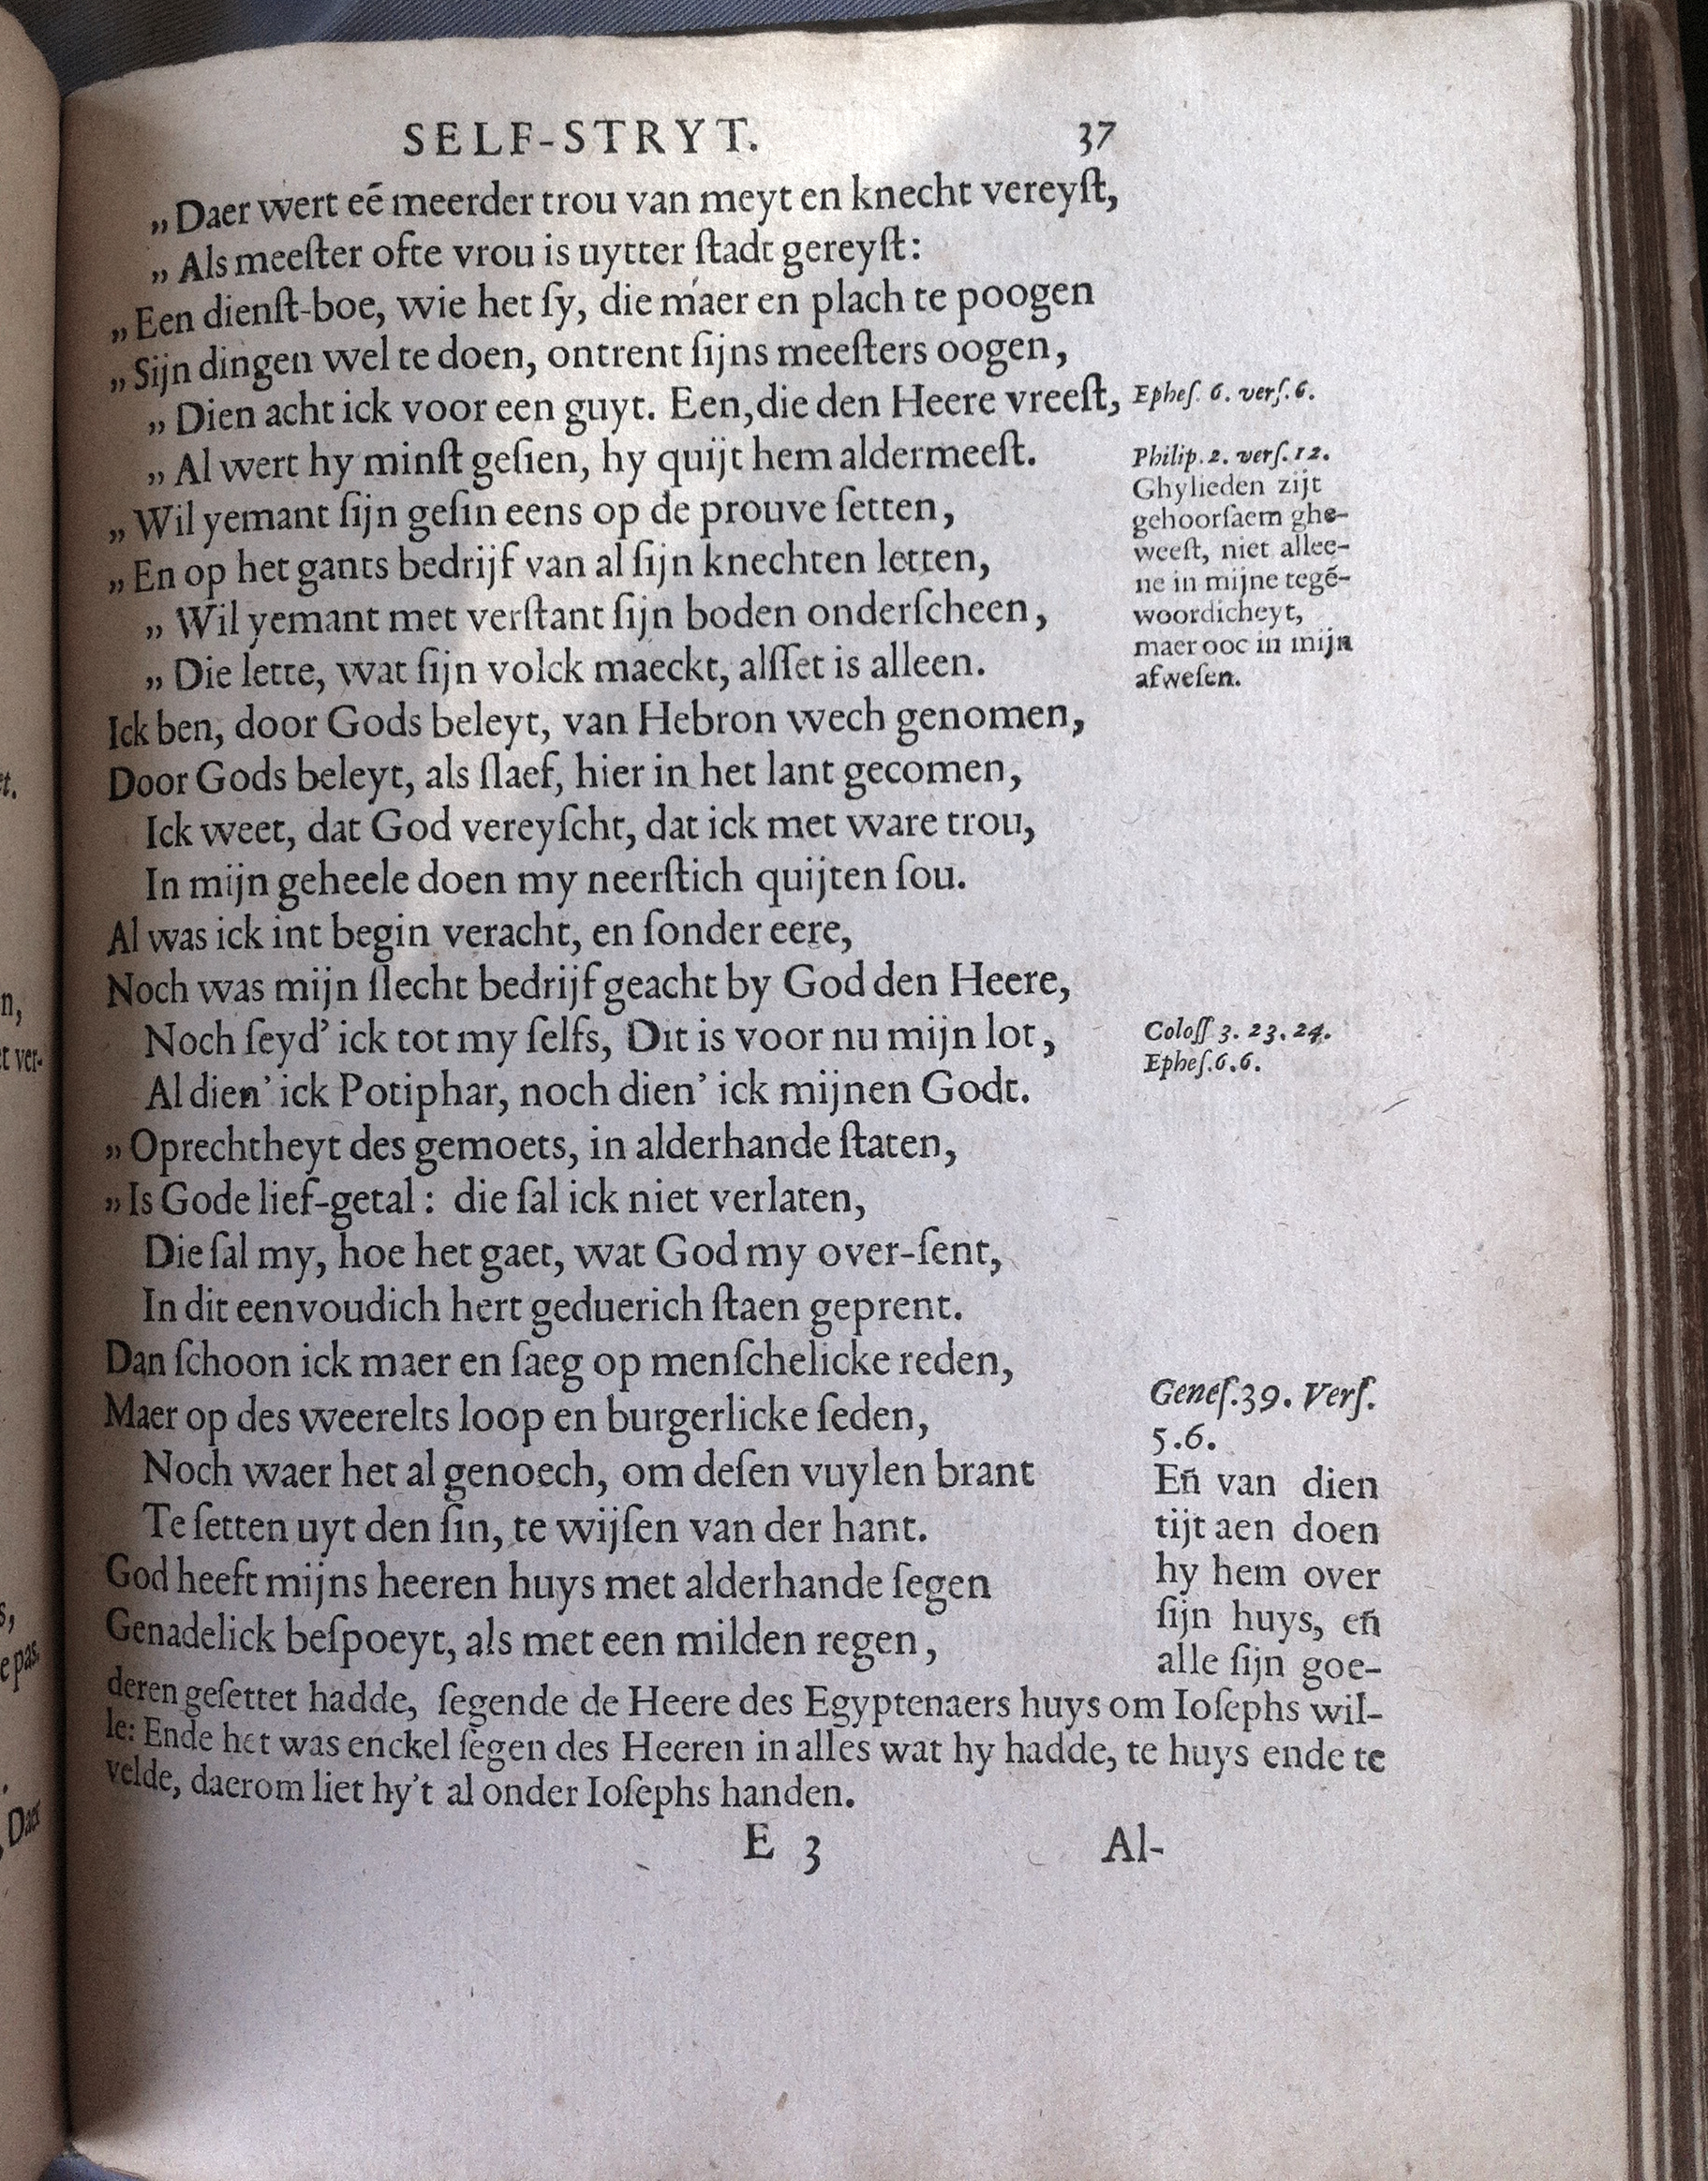 SELF-STRYT. 37
„Daer wert eē meerder trou van meyt en knecht vereyſt,
„Als meeſter ofte vrou is uytter ſtadt gereyſt:
„Een dienſt-boe, wie het ſy, die maer en plach te poogen
„Sijn dingen wel te doen, ontrent ſijns meeſters oogen,
„Dien acht ick voor een guyt. Een, die den Heere vreeſt,
„Al wert hy minſt geſien, hy quijt hem aldermeeſt.
„Wil yemant ſijn geſin eens op de prouve ſetten,
„En op het gants bedrijf van al ſijn knechten letten,
„Wil yemant met verſtant ſijn boden onderſcheen,
„Die lette, wat ſijn volck maeckt, alſſet is alleen.
Ick ben, door Gods beleyt, van Hebron wech genomen,
Door Gods beleyt, als ſlaef, hier in het lant gecomen,
Ick weet, dat God vereyſcht, dat ick met ware trou,
In mijn geheele doen my neerſtich quijten ſou.
Al was ick int begin veracht, en ſonder eere,
Noch was mijn ſlecht bedrijf geacht by God den Heere,
Noch ſeyd' ick tot my ſelfs, Dit is voor nu mijn lot,
Al dien' ick Potiphar, noch dien' ick mijnen Godt.
„Oprechtheyt des gemoets, in alderhande ſtaten,
„Is Gode lief-getal: die ſal ick niet verlaten,
Die ſal my, hoe het gaet, wat God my over-ſent,
In dit eenvoudich hert geduerich ſtaen geprent.
Dan ſchoon ick maer en ſaeg op menſchelicke reden,
Maer op des weerelts loop en burgerlicke ſeden,
Noch waer het al genoech, om deſen vuylen brant
Te ſetten uyt den ſin, te wijſen van der hant.
God heeft mijns heeren huys met alderhande ſegen
Genadelick beſpoeyt, als met een milden regen,
Epheſ. 6. verſ. 6.
Philip. 2. verſ. 12.
Ghylieden zijt
gehoorſaem ghe-
weeſt, niet allee-
ne in mijne tegē-
woordicheyt,
maer ooc in mijn
afweſen.
Coloſſ 3. 23. 24.
Epheſ. 6. 6.
Geneſ. 39. Verſ.
5. 6.
Eñ van dien
tijt aen doen
hy hem over
ſijn huys, eñ
alle ſijn goe-
deren geſettet hadde, ſegende de Heere des Egyptenaers huys om Ioſephs wil-
le: Ende het was enckel ſegen des Heeren in alles wat hy hadde, te huys ende te
velde, daerom liet hy't al onder Ioſephs handen.
E 3 Al-